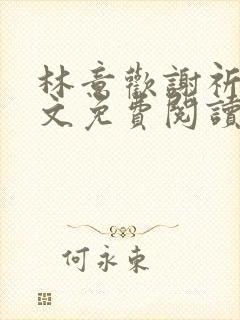 林意歡謝祈
文免費閱讀
何永東